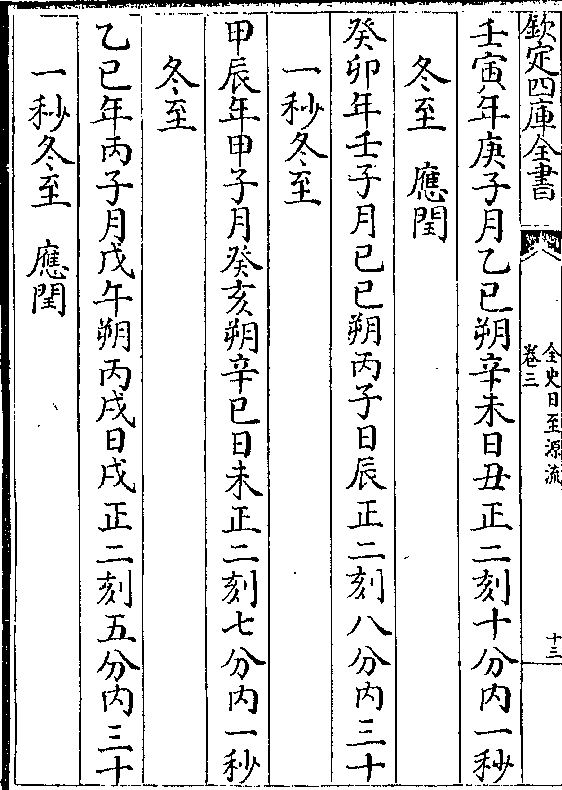 欽定四庫全書
全史日至源流
卷三
十三
壬寅年庚子月乙巳朔辛未日丑正二刻十分内一秒
冬至　應閏
癸卯年壬子月己巳朔丙子日辰正二刻八分内三十
一秒冬至
甲辰年甲子月癸亥朔辛巳日未正二刻七分内一秒
冬至
乙巳年丙子月戊午朔丙戌日戌正二刻五分内三十
一秒冬至　應閏